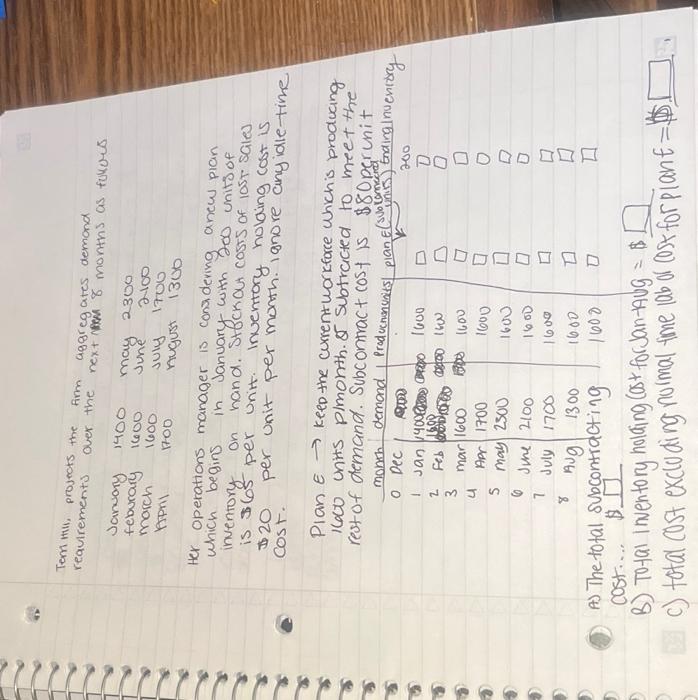 Terri Hill, projects the firm aggregates demand
requirements over the next 8 months as follows
January 1400 may 2300
feburary 1600 June 2100
march 1600 July 1700
April 1700 August 1300
Her operations manager is considering a new plan
which begins in January with 200 units of
inventory on hand. Stockout costs of lost sales
is $65 per unit. Inventory holding cost is
$20 per unit per month. Ignore any idle-time
cost.
Plan E → Keep the current workforce which is producing
1600 units p/month. & Subtracted to meet the
rest of demand. Subcontract cost is $80 per unit
month demand Production(units) plan E (Subcontract units) Ending Inventory
0 Dec 200
1 Jan 1400 1600
2 Feb 1600 1600
3 mar 1600 1600
4 Apr 1700 1600
5 may 2300 1600
6 June 2100 1600
7 July 1700 1600
8 Aug 1300 1600
A) The total subcontracting
cost.... $
B) Total inventory holding cost for Jan-Aug = $
C) total cost excluding normal time labor cost for plan E = $